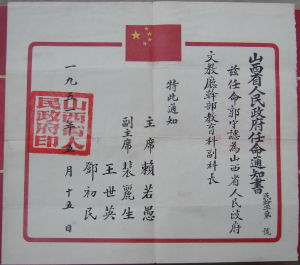 山西省人民政府任命通知書
茲任命郭守認為山西省人民政府
文教廳幹部教育科副科長
特此通知
主席 賴若愚
副主席 裴麗生
王世英
鄧初民
一九五 年五月十五日
山西省人民政府印